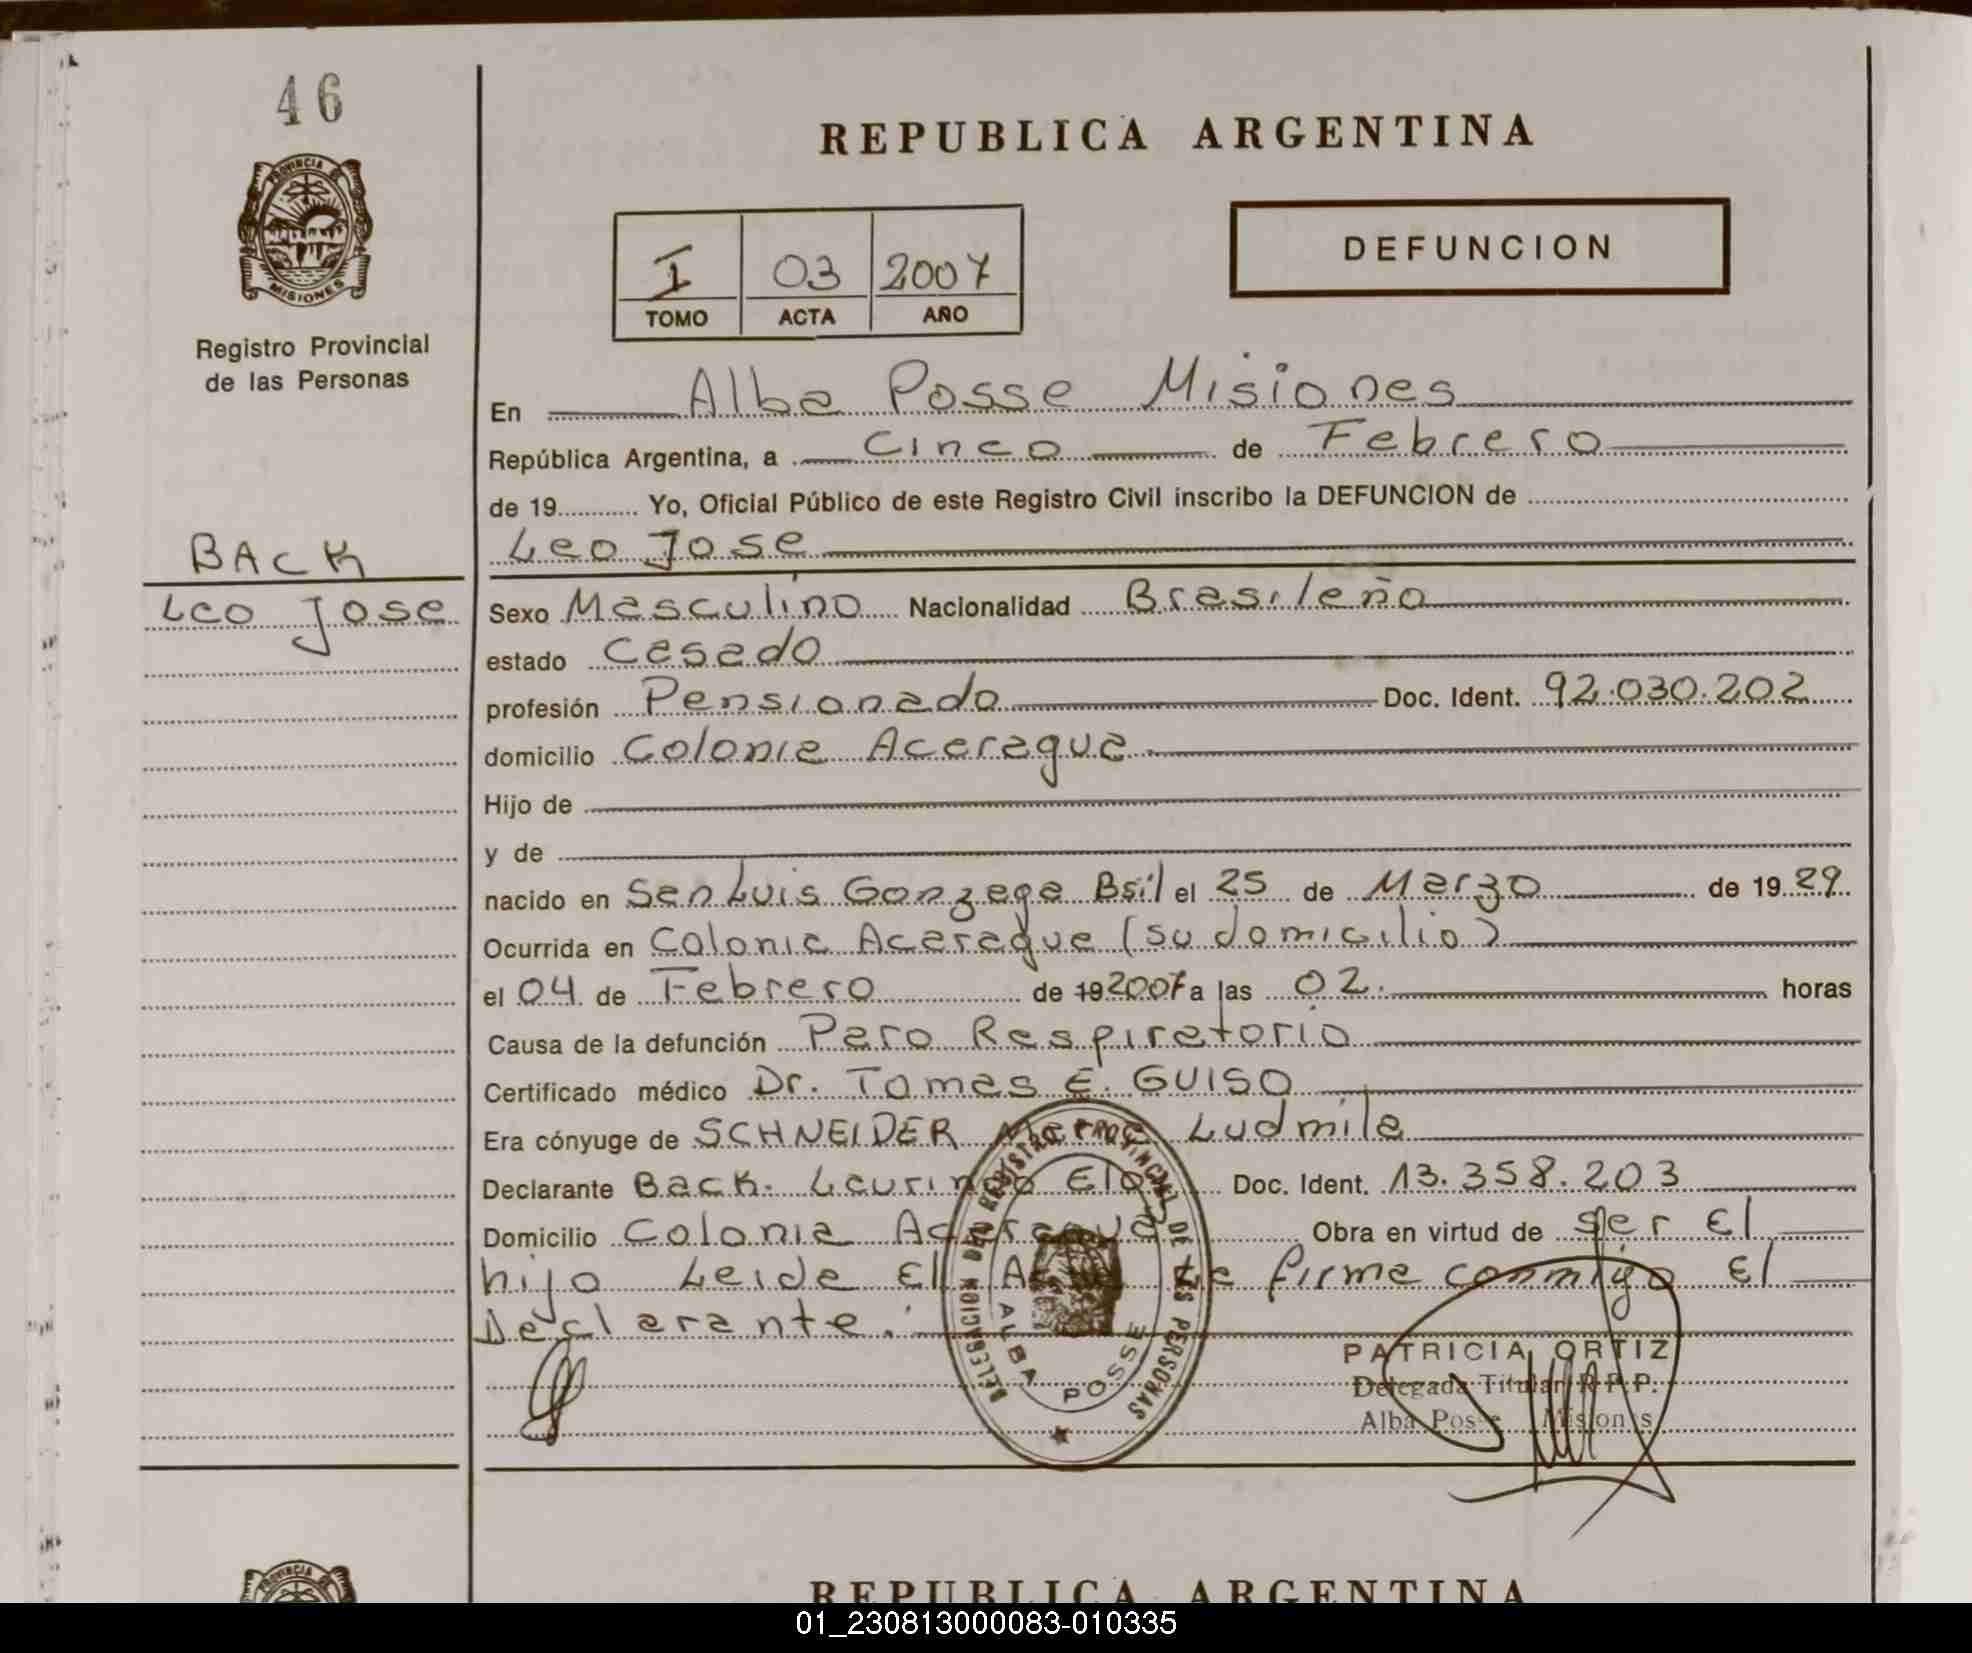 46
PROVINCIA DE
MISIONES
Registro Provincial
de las Personas
BACK
Leo Jose
REPUBLICA ARGENTINA
I 03 2007
TOMO ACTA AÑO
DEFUNCION
En Alba Posse Misiones
República Argentina, a Cinco de Febrero
de 19 Yo, Oficial Público de este Registro Civil inscribo la DEFUNCION de
Leo Jose
Sexo Masculino Nacionalidad Brasileño
estado Casado
profesión Pensionado Doc. Ident. 92.030.202
domicilio Colonia Acaragua
Hijo de
y de
nacido en San Luis Gonzaga Bsil el 25 de Marzo de 19 29
Ocurrida en Colonia Acaragua (su domicilio)
el 04 de Febrero de 19 2007 a las 02. horas
Causa de la defunción Paro Respiratorio
Certificado médico Dr. Tomas E. GUISO
Era cónyuge de SCHNEIDER Ludmila
Declarante Back. Doc. Ident. 13.358.203
Domicilio Colonia Acaragua Obra en virtud de ser El
hijo Leida El firma conmigo El
Declarante.
DELEGACION DEL REGISTRO PROVINCIAL DE LAS PERSONAS
ALBA POSSE
PATRICIA ORTIZ
Delegada Titular R.P.P.
Alba Posse Misiones
PROVINCIA
REPUBLICA ARGENTINA
01_230813000083-010335